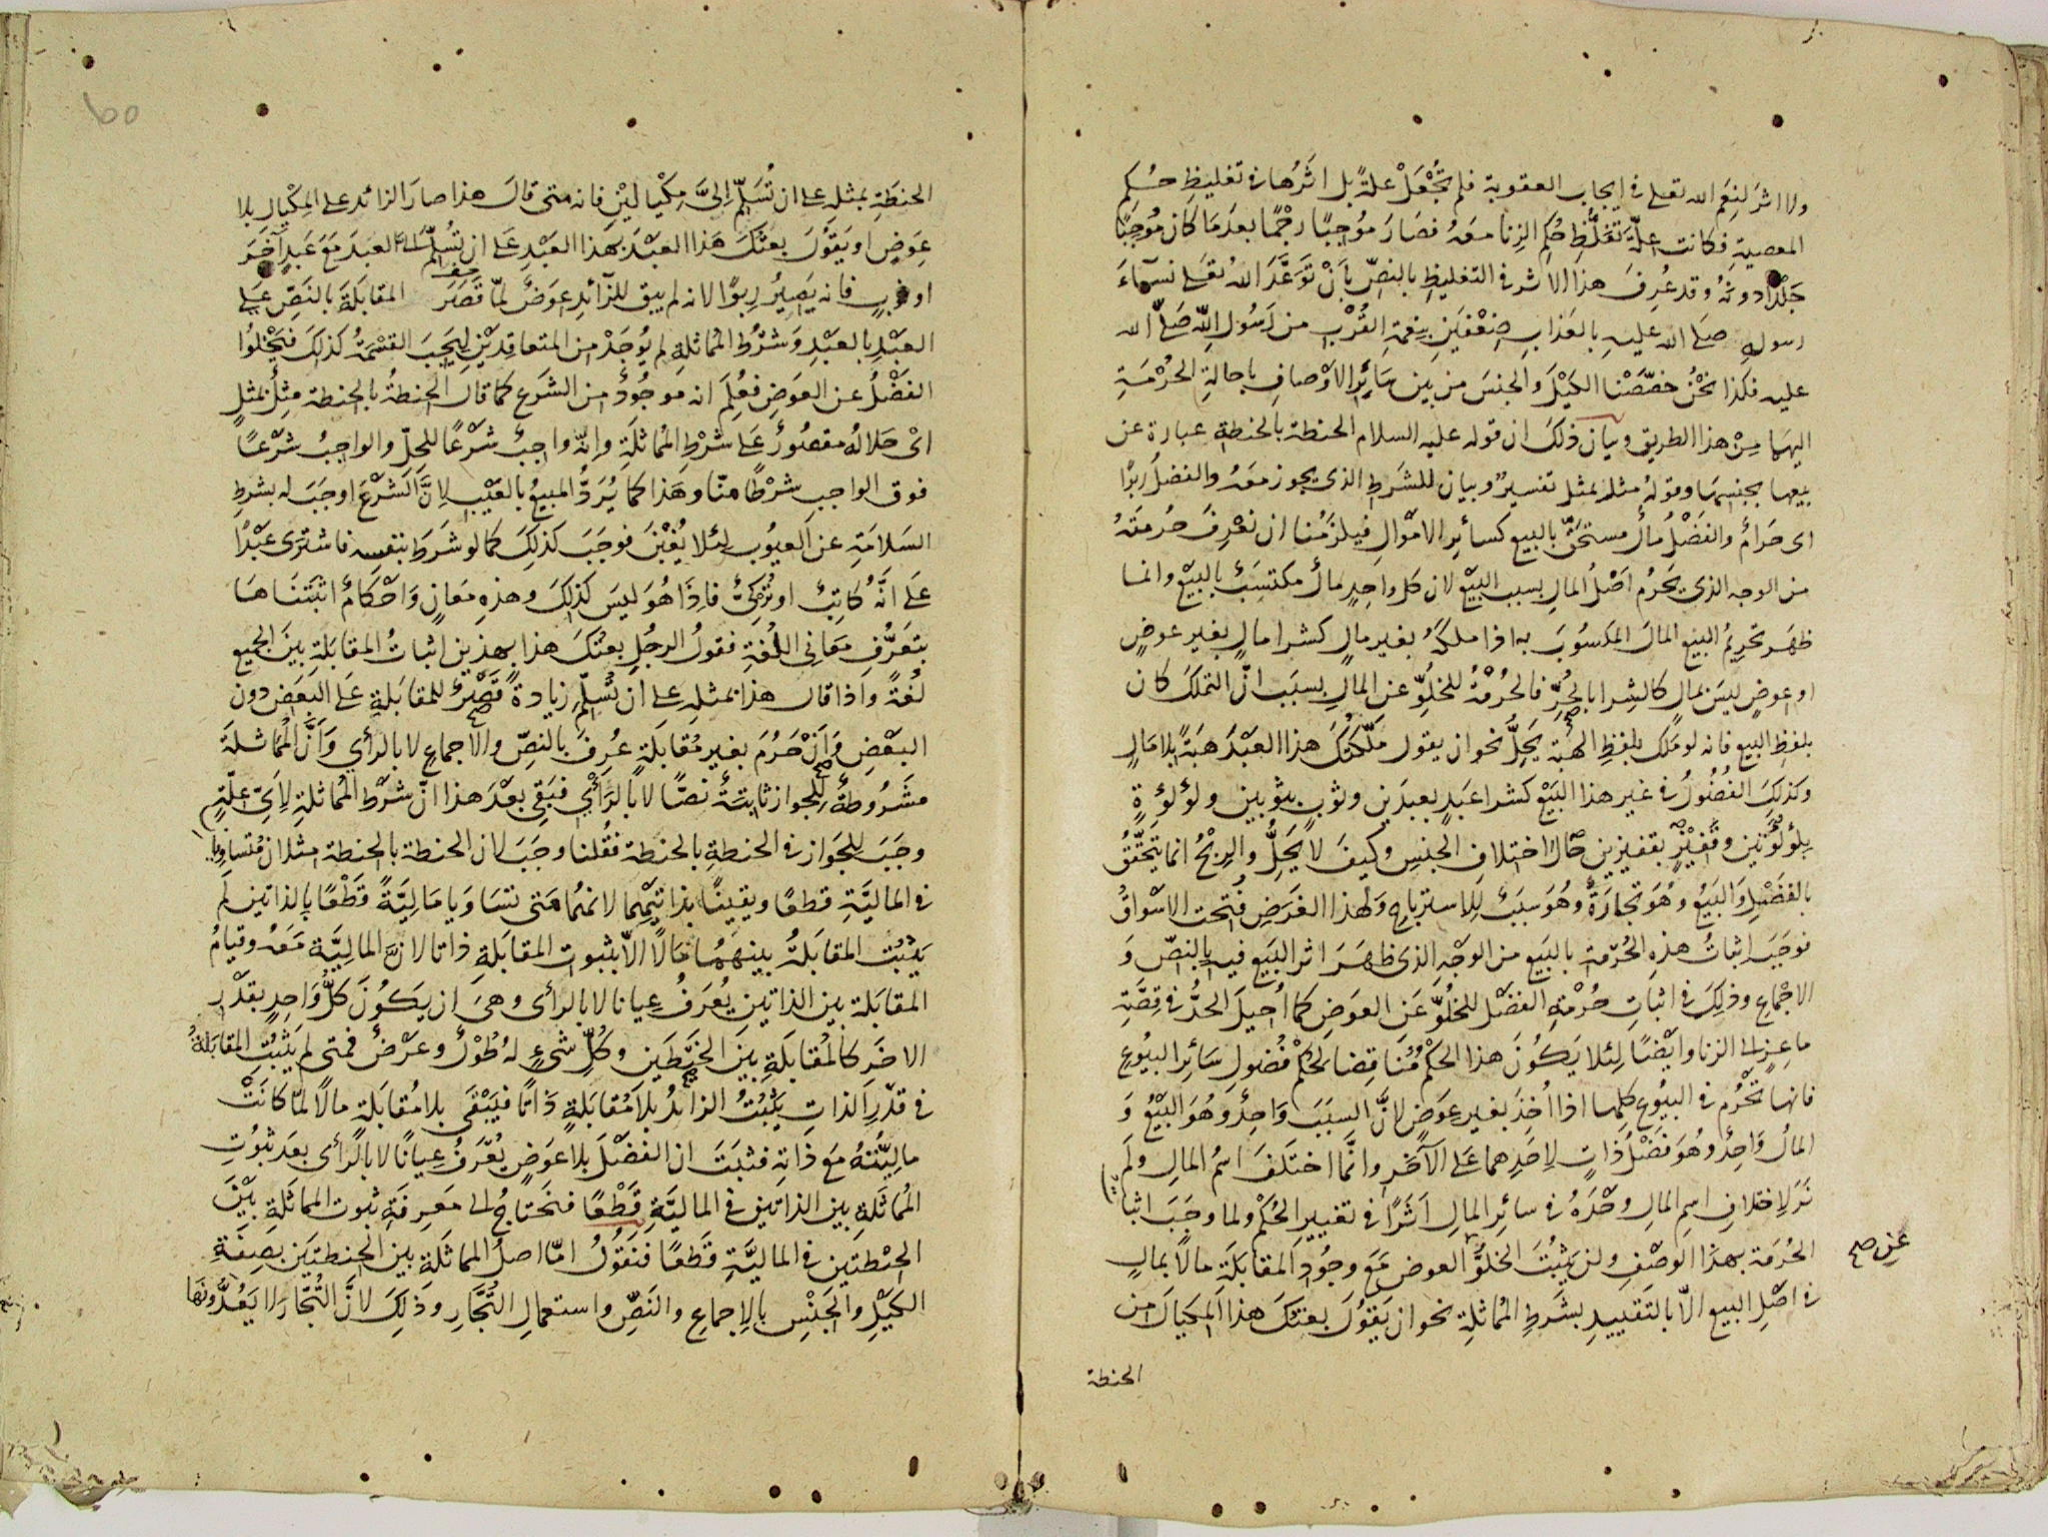 ولا اثر لنعم الله تعلى فى ايجاب العقوبة فلم تُجْعَلْ علةً بل اثرها فى تغليظِ حُكمِ
المعصيةِ فكانت علّة تغلّظِ حُكمِ الزنا معهُ فصَارَ مُوجِبًا رجْمًا بعدَمَا كان مُوجِبًا
جَلْدًا دونهُ وقد عُرِفَ هذا الاثر فى التغليظِ بالنصِّ بأنْ تَوَعَّدَ اللهُ تعلى نسآءَ
رسولهِ صلى الله عليهِ بالعذابِ ضِعْفَينِ بنعمةِ القُرْبِ من رَسُولِ اللّهِ صَلّى الله
عليه فكذا نحْنُ خصّصْنا الكيْلَ والجنسَ من بين سَائرِ الاوْصافِ باحالةِ الحُرْمَةِ
اليهما مِنْ هذا الطريق وبيان ذلكَ ان قوله عليه السلام الحنطة بالحنطةِ عبارة عن
بيعها بجنسِهَا وقولهُ مثلا بمثل تفسيرٌ وبيان للشَرطِ الذى يجوز معَهُ والفضلُ ربًا
اى حَرامٌ والفَضْلُ مالٌ مستحَقٌّ بالبيع كسائرِ الامْوالِ فيلزمُنا ان نعْرِفَ حُرمتَهُ
من الوجه الذى يَحرُم اصْلُ المالِ بسبب البيْعِ لان كل واحِدٍ مالٌ مكتسَبٌ بالبيْعِ وانما
ظهَر تحريمُ البيع المالَ المكسُوبَ به اذا ملكهُ بغير مالٍ كشرا مالٍ بغير عوضٍ
او عوضٍ ليسَ بمالٍ كالشِرا بالحُرِّ فالحُرْمَةُ للخلوِّ عن المالِ بسبَب انّ التملكَ كان
بلفظِ البيع فانه لو ملك بلفظِ الهبة يَحِلُّ نحو ان يقول ملّكتُكَ هذا العَبْدَ هَبةً بلا مَالٍ
وكذلكَ الفُضُولُ فى غير هذا البَيْعِ كشرا عَبدٍ بعبدَين وثوبٍ بثوبين ولؤلؤةٍ
بلؤلؤتين وقفِيزٍ بقفيزين حَالَ اختلافِ الجنسِ وكيفَ لا يَحِلُّ والرِبْحُ انما يَتحَقّقُ
بالفَضْلِ وَالبَيعُ وهُوَ تجارَةٌ وهُوَ سبَبٌ للاسترباحِ ولهذا الغَرَضِ فُتحت الاسْواقُ
فوجَبَ اثباتُ هذهِ الحُرمة بالبَيع من الوَجْهِ الذى ظهَرَ اثر البَيع فيه بالنصِّ وَ
الاجْماعِ وذلِكَ فى اثباتِ حُرْمةِ الفضْلِ للخلُوِّ عَن العوَضِ كما اُحِيلَ الحدُّ فى قِصّةِ
ماعزٍ الى الزنا وايْضًا لِئلا يَكُونَ هذا الحكمُ مُنَاقِضا لحُكمْ فُضُولِ سَائِر البيُوعِ
فانها تحْرُم فى البيُوعِ كلِها اذا اُخذَ بغيرِ عِوَضٍ لانَّ السبَبَ وَاحِدٌ وهُوَ البَيْعُ وَ
المالُ وَاحِدٌ وهُوَ فضْلُ ذاتٍ لاحَدِهما عَلى الآخَرِ وانَّما اختلَفَ اسمُ المالِ ولم
نرَ لاختلافِ اسمِ المالِ وحْدَهُ فى سائِرِ المالِ اَثَرًا فى تغيِيرِ الحُكمْ ولما وجَبَ اثباتُ
الحُرمَة بهذا الوصْفِ ولن يَثبُتَ الخلوُّ العوض مَعَ وجُودِ المقابَلَةِ مالًا بمالٍ
عَنِ صح
فى اصْلِ البيع الّا بالتقييدِ بشَرطِ المُماثلةِ نحو ان يَقولَ بعتكَ هذا المِكيَالَ من
الحنطة
الحنطَةِ بمثلهِ على ان تُسَلّمَ اِلىَّ مِكْيالَيْنِ فانه متى قالَ هذا صارَ الزائد على المِكْيالِ بلا
عِوَضٍ او يَقولَ بعتُكَ هَذا العَبْدَ بهذا العَبْدِ عَلى ان تُسَلّمَ العبدَ مَعَ عَبدٍ آخَرَ
او ثوبٍ فانه يَصِيرُ رِبوًا لانه لم يبق للزّائدِ عِوَضٌ لمّا قصَرَ المقابَلَةَ بالنَصِّ عَلى
العبْدِ بالعبْدِ وَشرْطُ المُماثلةِ لم يُوجَدْ من المتعاقِدَيْنِ لِيَجبَ القسْمَةُ كذلكَ فيَخْلُوا
الفَضْلُ عن العوَضِ فعُلِمَ انه موجُودٌ من الشَرعِ كما قال الحِنطةُ بالحنطة مِثلٌ بمثلٍ
اىْ حَلالهُ مقصُورٌ عَلى شرْطِ المُماثلَةِ وانّه واجبٌ شَرْعًا للحِلّ والواجبُ شرْعًا
فوق الواجبِ شرْطًا منّا وهَذا كما يُرَدُّ المبيعُ بالعَيْبِ لانَّ الشرْعَ اوجَبَ له بشرطِ
السَلامَةِ عن العيُوبِ لِئلا يُغْبَنَ فوجَبَ كذَلِكَ كما لو شرَطَ بنفسِه فاشترى عبْدًا
عَلى انَّهُ كاتِبٌ او تُركِىٌّ فاذَا هُوَ ليسَ كذلِكَ وهذهِ مَعانٍ وَاحْكامٌ اثبَتنَاهَا
بتعَرُّفِ مَعَانِى اللُغةِ فقولُ الرجُلِ بعتُكَ هذا بهذين اثباتُ المقابَلَةِ بينَ الجمِيعِ
لُغةً واذا قال هذا بمثلهِ على ان تُسَلّمَ زيادةً قصْرٌ للمقابَلةِ عَلى البَعَضِ دونَ
البَعْضِ وَاَنْ حَرُمَ بغيرِ مُقابَلةٍ عُرِفَ بالنصِّ والاجماعِ لا بالرأىِ وَاَنَّ المُمَاثلَةَ
مشرُوطةٌ لِلجواز ثابِتةٌ نصًّا لا بالرَأْىِ فبَقِىَ بعْدَ هذا انّ شرْطَ المُماثلةِ لاَىِّ عِلّةٍ
وجَبَ لِلجَوازِ فى الحنطةِ بالحنطة فقُلنا وجَبَ لان الحنطة بالحنطة مثلان مُتسَاوِيَا
فى الماليَّةِ قطعًا ويقِينًا بذاتيْهِما لانهُما متى تسَاوَيا مَاليَّةً قطعًا بالذاتين لم
يَثبُت المقابَلَةُ بينهُمَا مَالًا الّا بثبوت المقابَلةِ ذاتا لانَّ الماليَّة مَعَهُ وقيامُ
المقابَلة بين الذاتينِ يُعْرَفُ عِيانا لا بالرأى وهىَ ان يَكُونَ كلُّ وَاحِدٍ بقدْر
الاخَرِ كالمُقابَلةِ بَينَ الخَيْطَينِ وكُلّ شىءٍ لهُ طُوْلٌ وعرْضٌ فمتى لم يَثبُتِ المقابَلةُ
فى قدْرِ الذاتِ يَثبُتُ الزائدُ بلا مُقابَلةٍ ذَاتًا فيَبْقى بلا مُقابَلَةٍ مالًا لمّا كانَتْ
مالِيَّتُهُ مَعَ ذَاتهِ فثبَتَ ان الفضْلَ بلا عوَضٍ يُعْرَفُ عِيانًا لا بالرأى بعدَ ثبُوتِ
المُماثَلةِ بين الذاتين فى الماليَّةِ قطْعًا فنحتاجُ الى مَعرفةِ ثبوت المماثَلةِ بيْنَ
الحِنْطتينِ فى الماليَّةِ قطعًا فنقُولُ امّا اصلُ المماثَلَةِ بين الحِنطتيَنِ بصِفةِ
الكيَلِ والجَنْسِ بالاِجماعِ والنَصِّ واستعمالِ التُجَّارِ وذَلِكَ لانَّ التُجّارَ لا يَعُدُّونَهَا